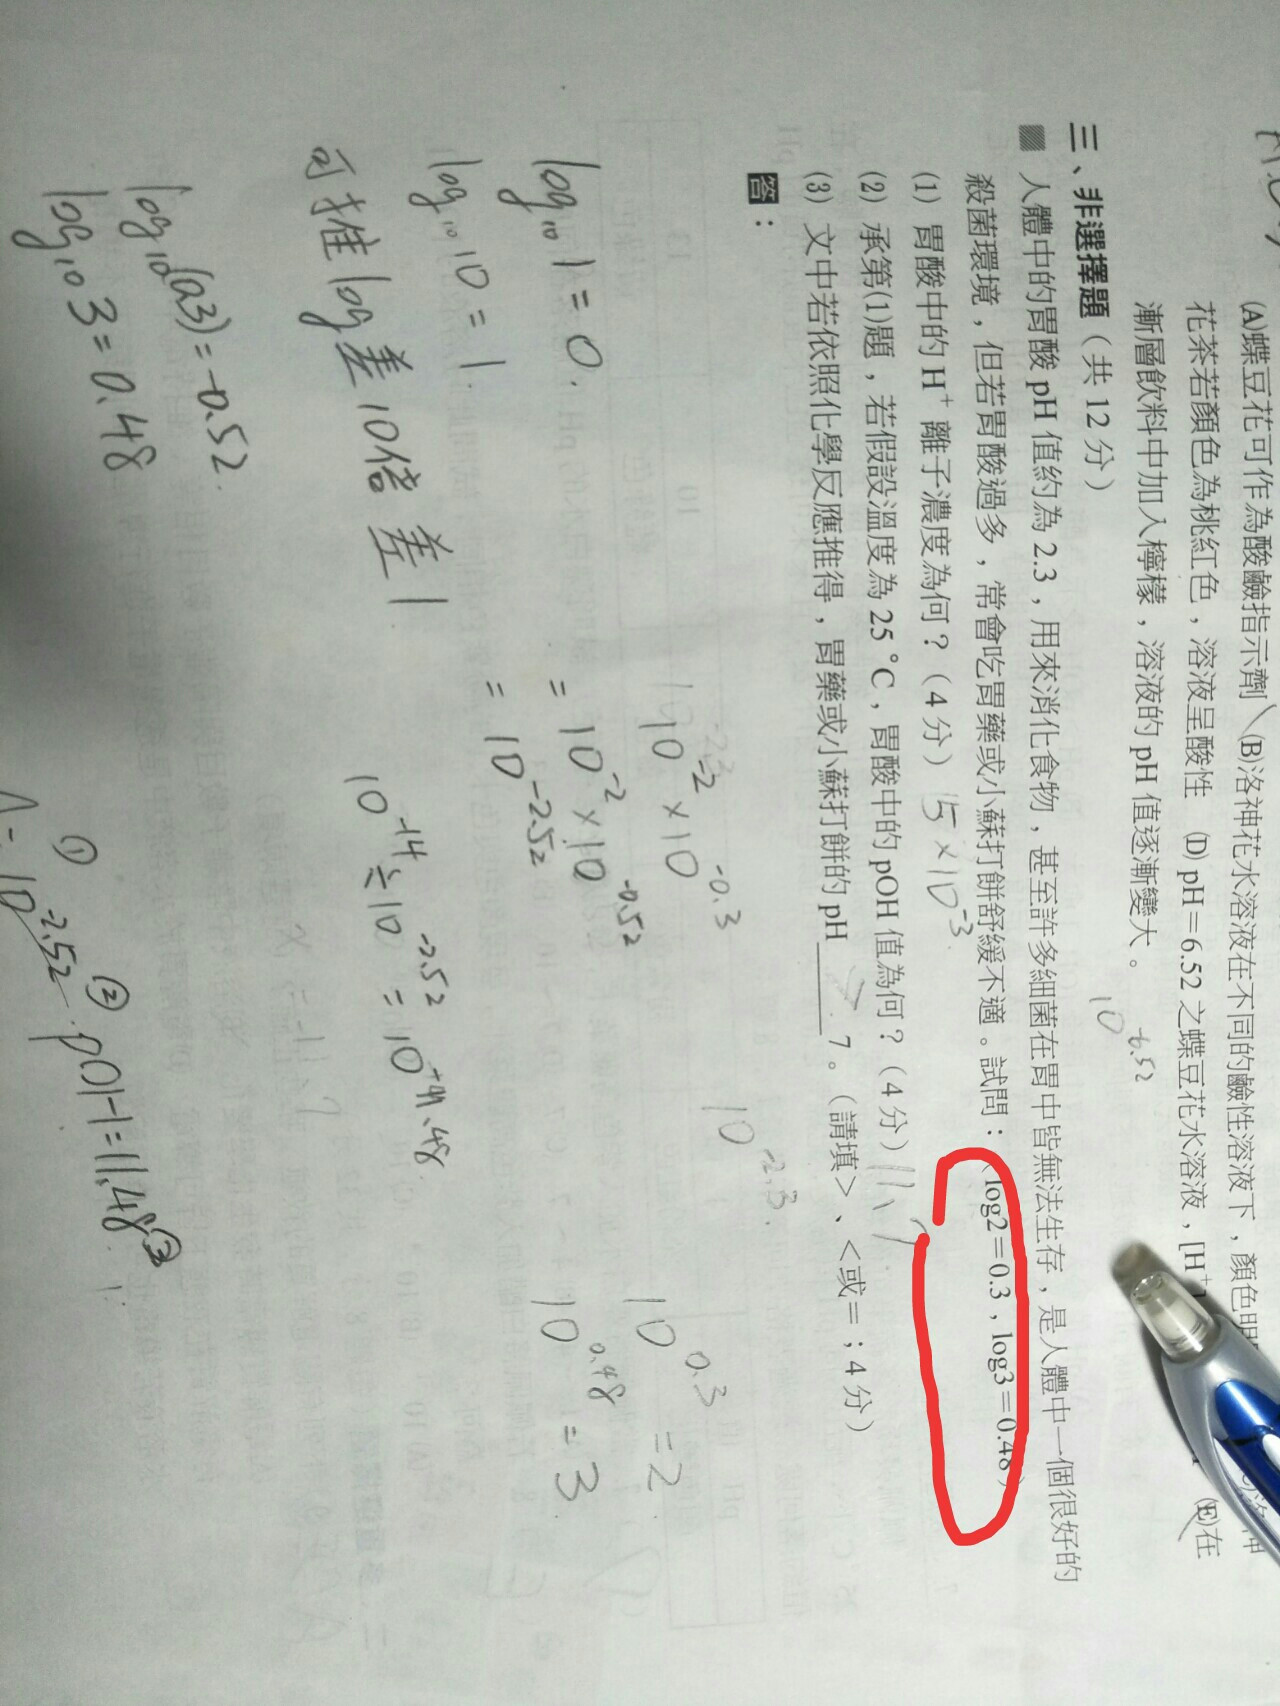 (A)蝶豆花可作為酸鹼指示劑 (B)洛神花水溶液在不同的鹼性溶液下，顏色明
花茶若顏色為桃紅色，溶液呈酸性 (D) pH＝6.52 之蝶豆花水溶液，[H⁺] (E)在
漸層飲料中加入檸檬，溶液的 pH 值逐漸變大。
10^-6.52
三、非選擇題（共 12 分）
人體中的胃酸 pH 值約為 2.3，用來消化食物，甚至許多細菌在胃中皆無法生存，是人體中一個很好的
殺菌環境，但若胃酸過多，常會吃胃藥或小蘇打餅舒緩不適。試問：（log2＝0.3，log3＝0.48）
(1) 胃酸中的 H⁺ 離子濃度為何？（4 分）5×10^-3
(2) 承第(1)題，若假設溫度為 25 °C，胃酸中的 pOH 值為何？（4 分）11.7
(3) 文中若依照化學反應推得，胃藥或小蘇打餅的 pH＿＿＿7。（請填＞、＜或＝；4 分）
答：
10^-2.3
10^-2×10^-0.3
10^0.3=2
log₁₀1=0
=10^-2×10^-0.52
10^0.48=3
log₁₀10=1
=10^-2.52
可推log差10倍差1
10^-14÷10^-2.52=10^+11.48
log₁₀(0.3)=-0.52
log₁₀3=0.48
①
②pOH=11.48
10^-2.52